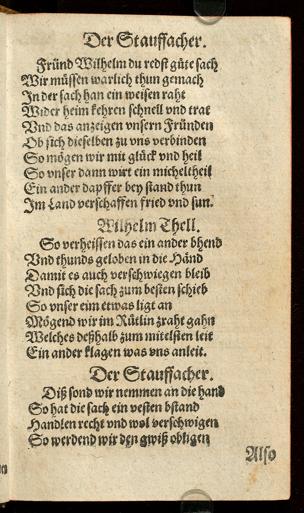 Der Stauffacher.
Fründ Wilhelm du redst güte sach
Wir müssen warlich thun gemach
In der sach han ein weisen raht
Wider heim kehren schnell vnd trat
Vnd das anzeigen vnsern Fründen
Ob sich dieselben zu vns verbinden
So mögen wir mit glück vnd heil
So vnser dann wirt ein micheltheil
Ein ander dapffer bey stand thun
Im Land verschaffen fried vnd sun.
Wilhelm Thell.
So verheissen das ein ander bhend
Vnd thunds geloben in die Händ
Damit es auch verschwiegen bleib
Vnd sich die sach zum besten schieb
So vnser eim etwas ligt an
Mögend wir im Rütlin zraht gahn
Welches deßhalb zum mittelsten leit
Ein ander klagen was vns anleit.
Der Stauffacher.
Diß sond wir nemmen an die hand
So hat die sach ein vesten bstand
Handlen recht vnd wol verschwigen
So werdend wir den gwiß obligen
Also